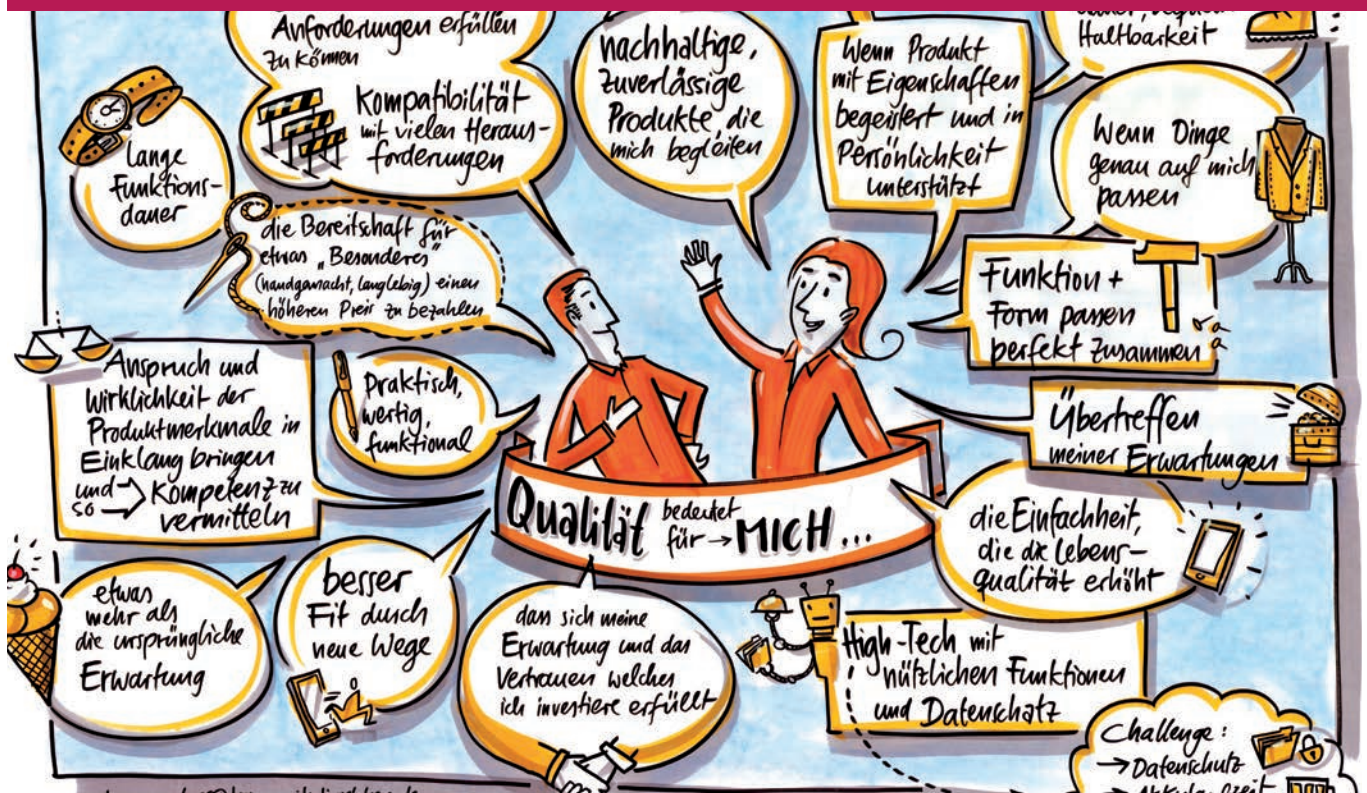 Anforderungen erfüllen
zu können
Kompatibilität
mit vielen Heraus-
forderungen
nachhaltige,
zuverlässige
Produkte, die
mich begleiten
Wenn Produkt
mit Eigenschaften
begeistert und in
Persönlichkeit
unterstützt
Haltbarkeit
Wenn Dinge
genau auf mich
passen
Lange
Funktions-
dauer
die Bereitschaft für
etwas „Besonderes"
(handgemacht, langlebig) einen
höheren Preis zu bezahlen
Funktion +
Form passen
perfekt zusammen
Anspruch und
Wirklichkeit der
Produktmerkmale in
Einklang bringen
und → Kompetenz zu
so vermitteln
Praktisch,
wertig,
funktional
Übertreffen
meiner Erwartungen
Qualität bedeutet
für → MICH ...
die Einfachheit,
die die Lebens-
qualität erhöht
etwas
mehr als
die ursprüngliche
Erwartung
besser
Fit durch
neue Wege
dass sich meine
Erwartung und das
Vertrauen welches
ich investiere erfüllt
High-Tech mit
nützlichen Funktionen
und Datenschatz
Challenge:
→ Datenschutz